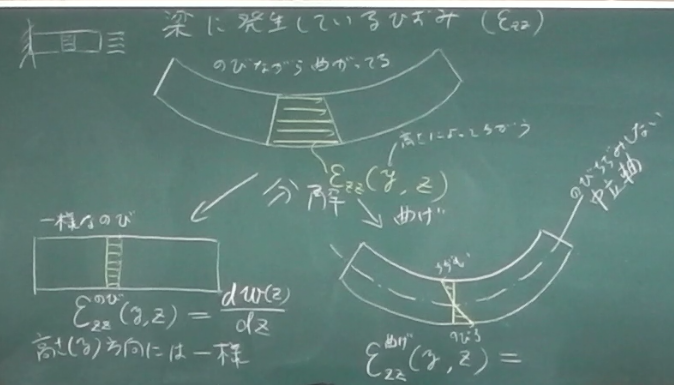 梁に発生しているひずみ (εzz)
のびながらまがってる
高さによってちがう
εzz(y, z)
分解
一様なのび
まげ
のびちぢみしない
中立軸
ちぢむ
のびる
εzzのび(y, z) = dw(z)/dz
高さ(y)方向には一様
εzzまげ(y, z) =